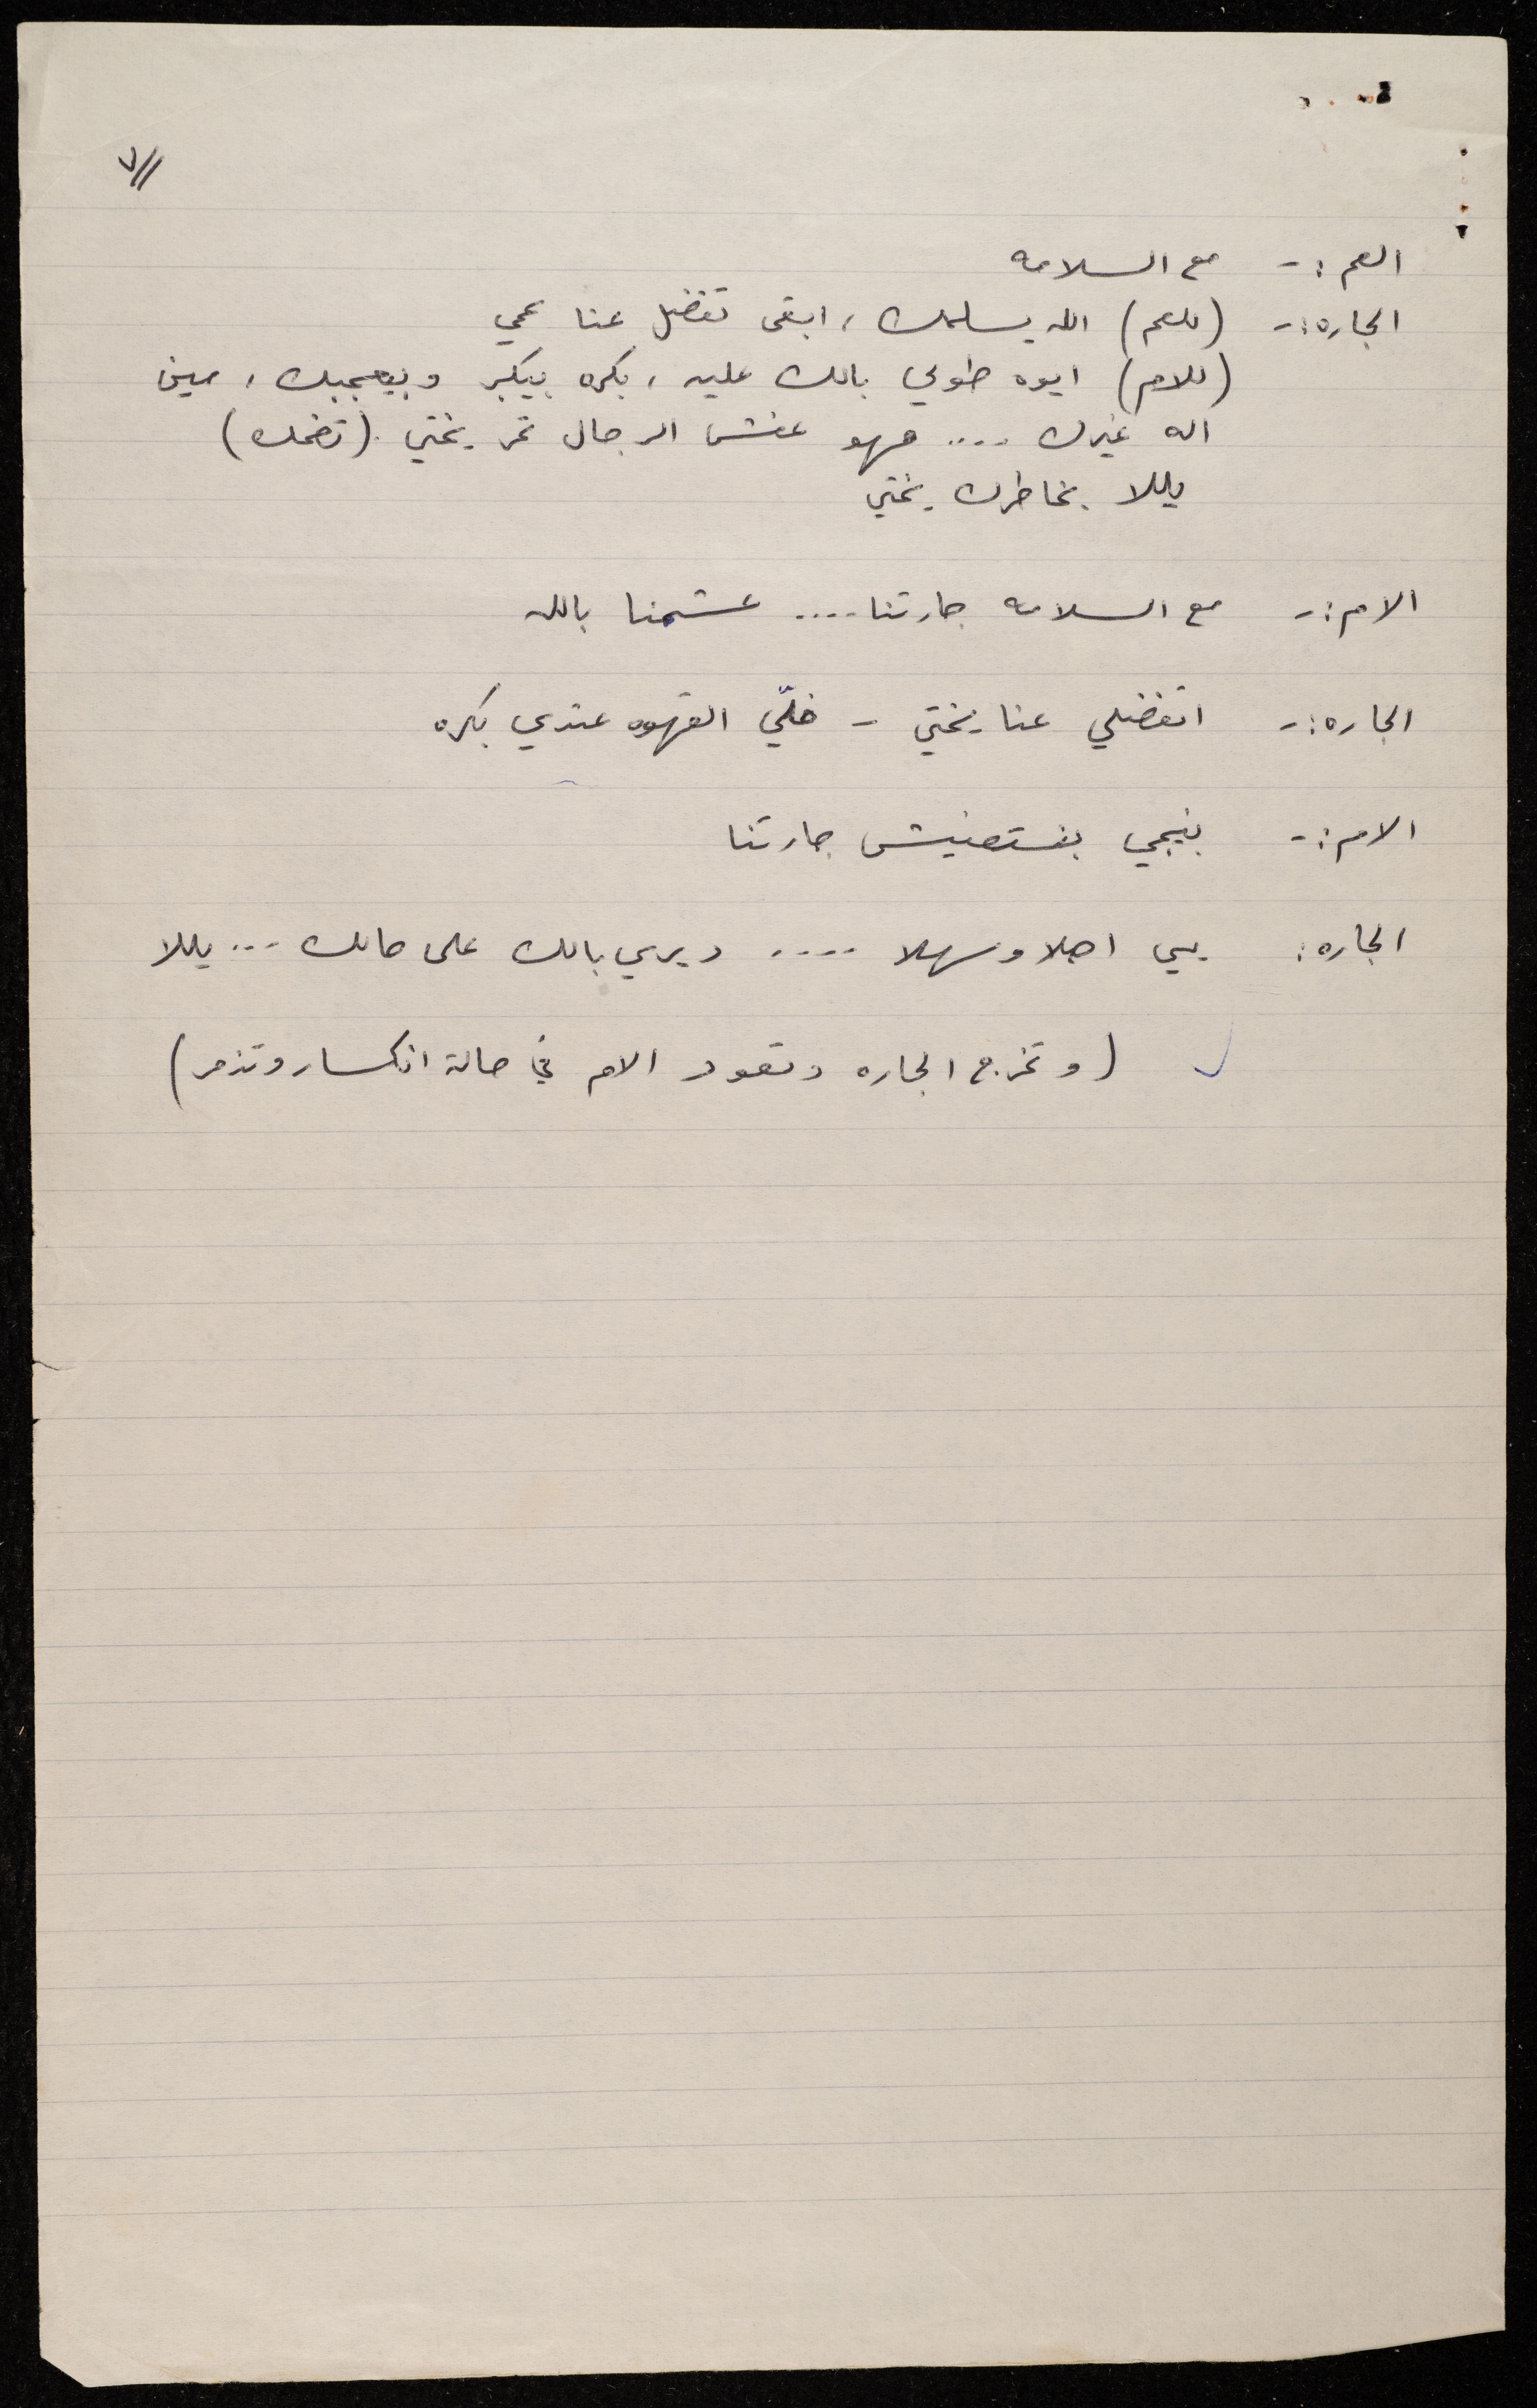 ٧//
العم :- مع السلامه
الجاره :- (للعم) الله يسلمك ، ابقى تفضل عنا عمي
(للام) ايوه طولي بالك عليه ، بكره بيكبر وبيعجبك ، مين
اله غيرك .... مهو عفش الرجال تمر يختي . (تضحك)
يللا بخاطرك يختي
الام :- مع السلامه جارتنا .... عشمنا بالله
الجاره :- اتفضلي عنا يختي - خلّي القهوه عندي بكره
الام :- بنيجي بنستغنيش جارتنا
الجاره : يي اهلا وسهلا .... ديري بالك على حالك ... يللا
(وتخرج الجاره وتعود الام في حالة انكسار وتذمر)